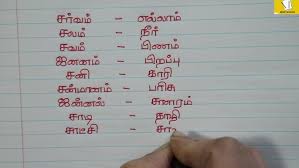 சர்வம் - எல்லாம்
சலம் - நீர்
சவம் - பிணம்
ஜனனம் - பிறப்பு
சனி - காரி
சன்மானம் - பரிசு
ஜன்னல் - சாளரம்
சாடி - தாழி
சாட்சி -